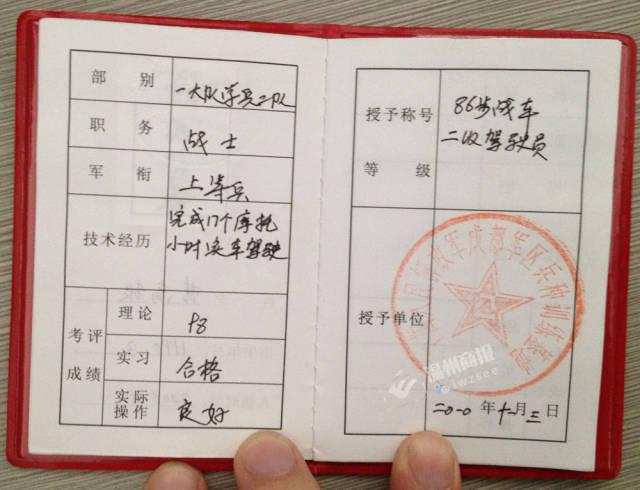 部别 一大队学兵二队
职务 战士
军衔 上等兵
技术经历 完成17个摩托
小时实车驾驶
考评成绩
理论 98
实习 合格
实际操作 良好
授予称号等级 86步战车
二级驾驶员
授予单位
军成都军区兵种训练
二〇一〇年十一月三日
温州商报
iwzsee